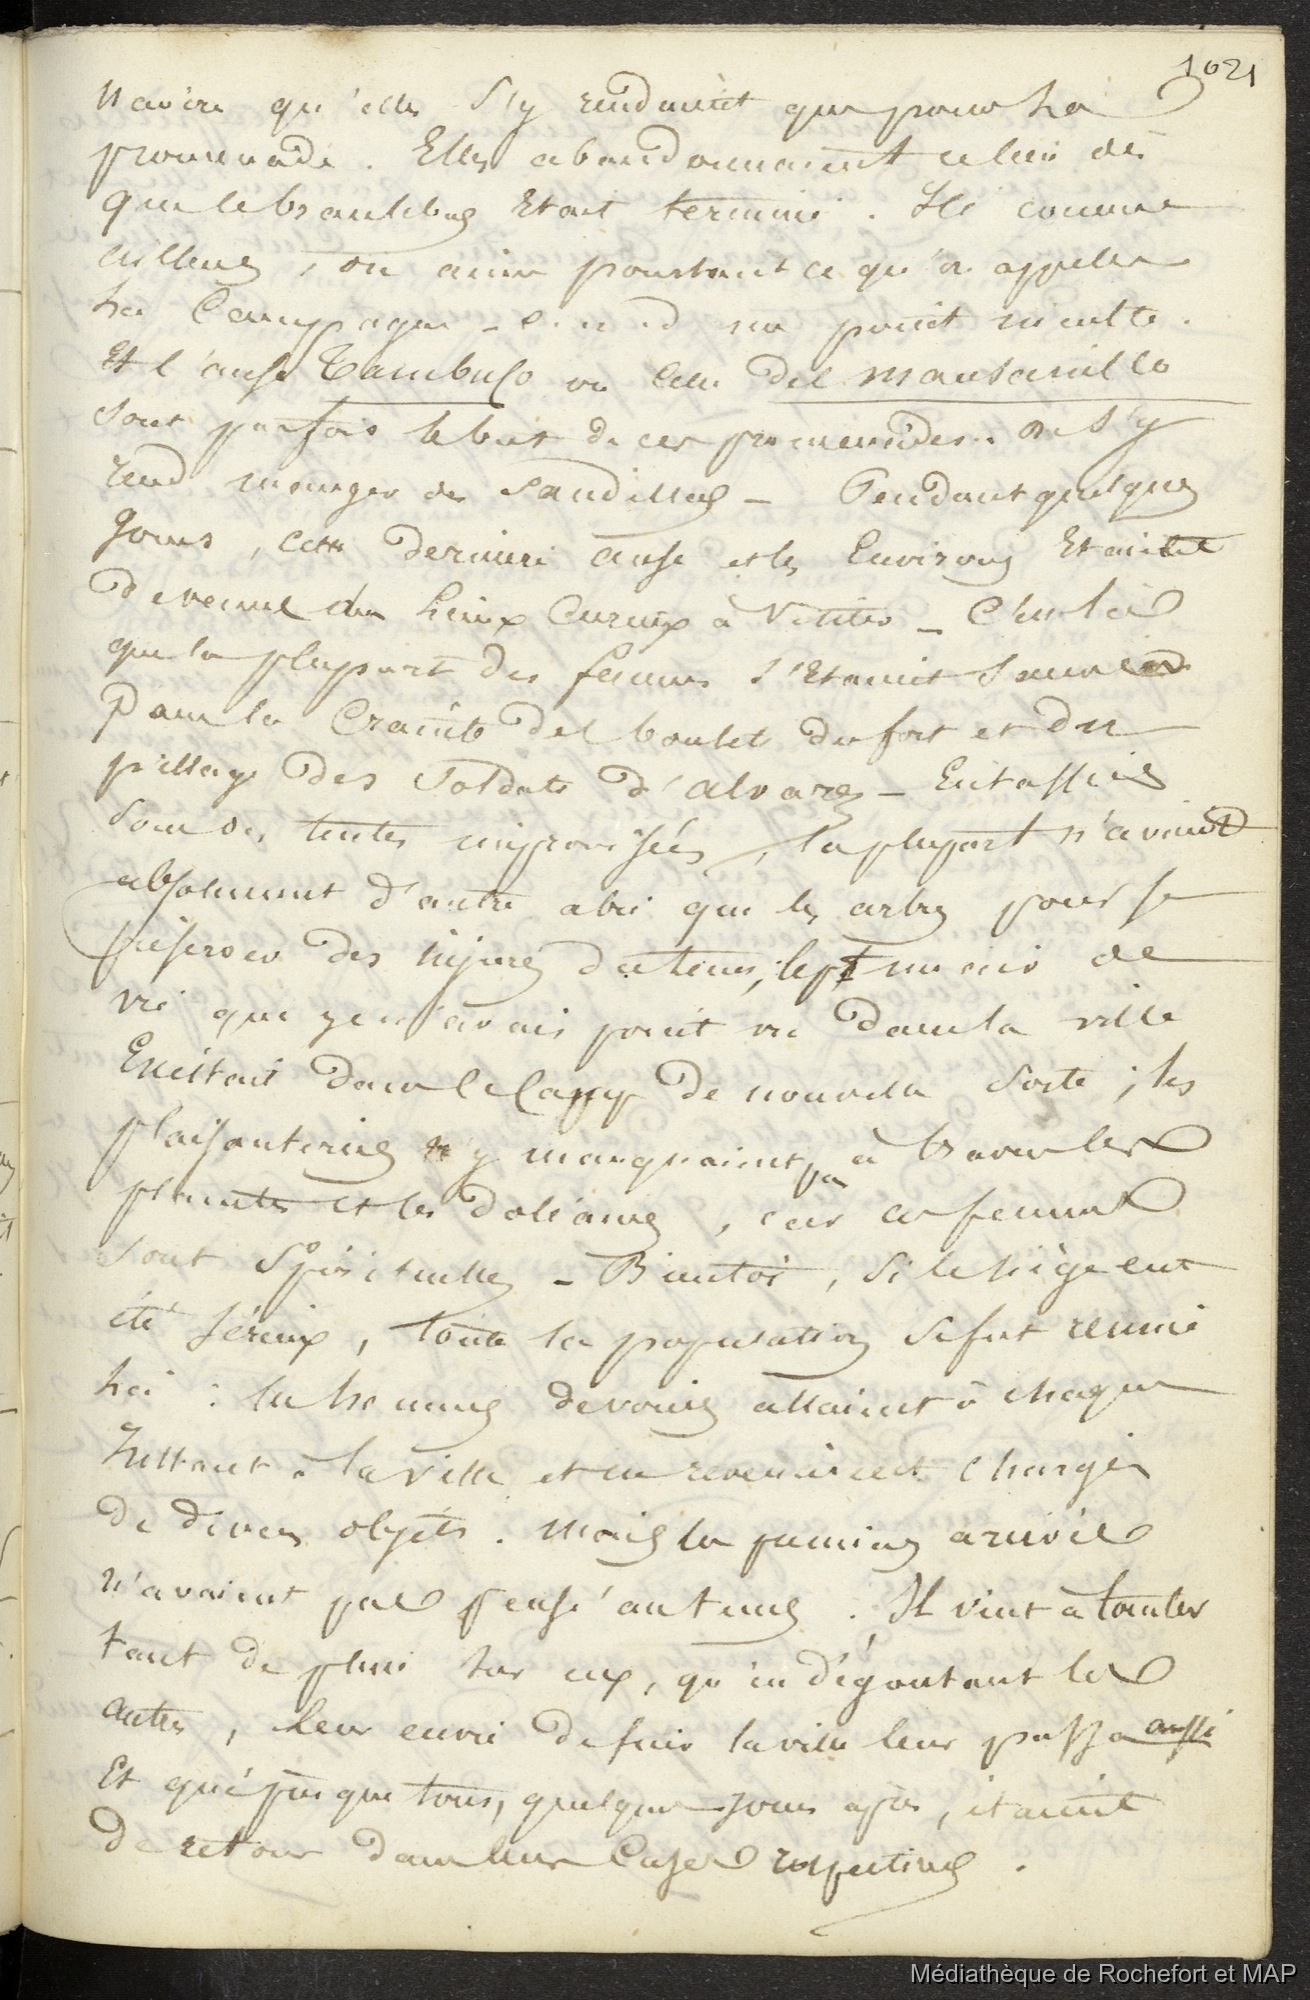 1021
navire qu'elles s'y rendaient que pour la
promenade. Elles abandonnaient celui dès
que le branlebas Etait terminé. Ici comme
ailleurs, on aime pourtant ce qu'on appelle
la Campagne - point inculte.
Et l'anse Tambuso ou celle del mansanillo
sont parfois le but de ces promenades. on s'y
rend manger des Sandillas - Pendant quelques
Jours, cette dernière anse et les Environs Etaient
devenus des lieux Curieux à Visiter - C'est là
que la plupart des femmes s'Etaient Sauvées
Dans la Crainte des boulets du fort et du
pillage des Soldats d'alvarez - Entassées
Sous des tentes improvisées, la plupart n'avaient
absolument d'autre abri que les arbres pour se
préserver des injures du tems; de
vie que je n'avais point vu dans la ville
Existait dans le Camp de nouvelle sorte; les
plaisanteries n'y manquaient pas à travers les
plaintes et les doléances, car ces femmes
sont Spirituelles - Bientôt, si le siège eut
été sérieux, toute la population se fut réunie
là : les hommes dévoués allaient à chaque
Instant à la ville et en revenaient chargés
de divers objets. Mais la famine arrivée
n'avaient pas pensé au tems. Il vint à tomber
tant de pluie sur eux, qu'en dégoutant les
autres, leur envie de fuir la ville leur passa aussi
Et que presque tous, quelques jours après, étaient
de retour dans leurs Cases respectives.
Médiathèque de Rochefort et MAP